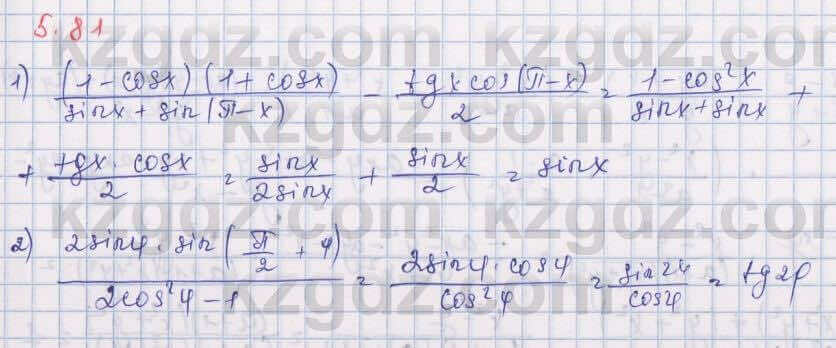 5.81
1) (1-cosx)(1+cosx) / sinx+sin(π-x) - tgx cos(π-x) / 2 = 1-cos²x / sinx+sinx +
+ tgx · cosx / 2 = sinx / 2sinx + sinx / 2 = sinx
2) 2sinφ · sin(π/2 + φ) / 2cos²φ-1 = 2sinφ · cosφ / cos²φ = sin2φ / cosφ = tg2φ
kzgdz.com
kzgdz.com
kzgdz.com